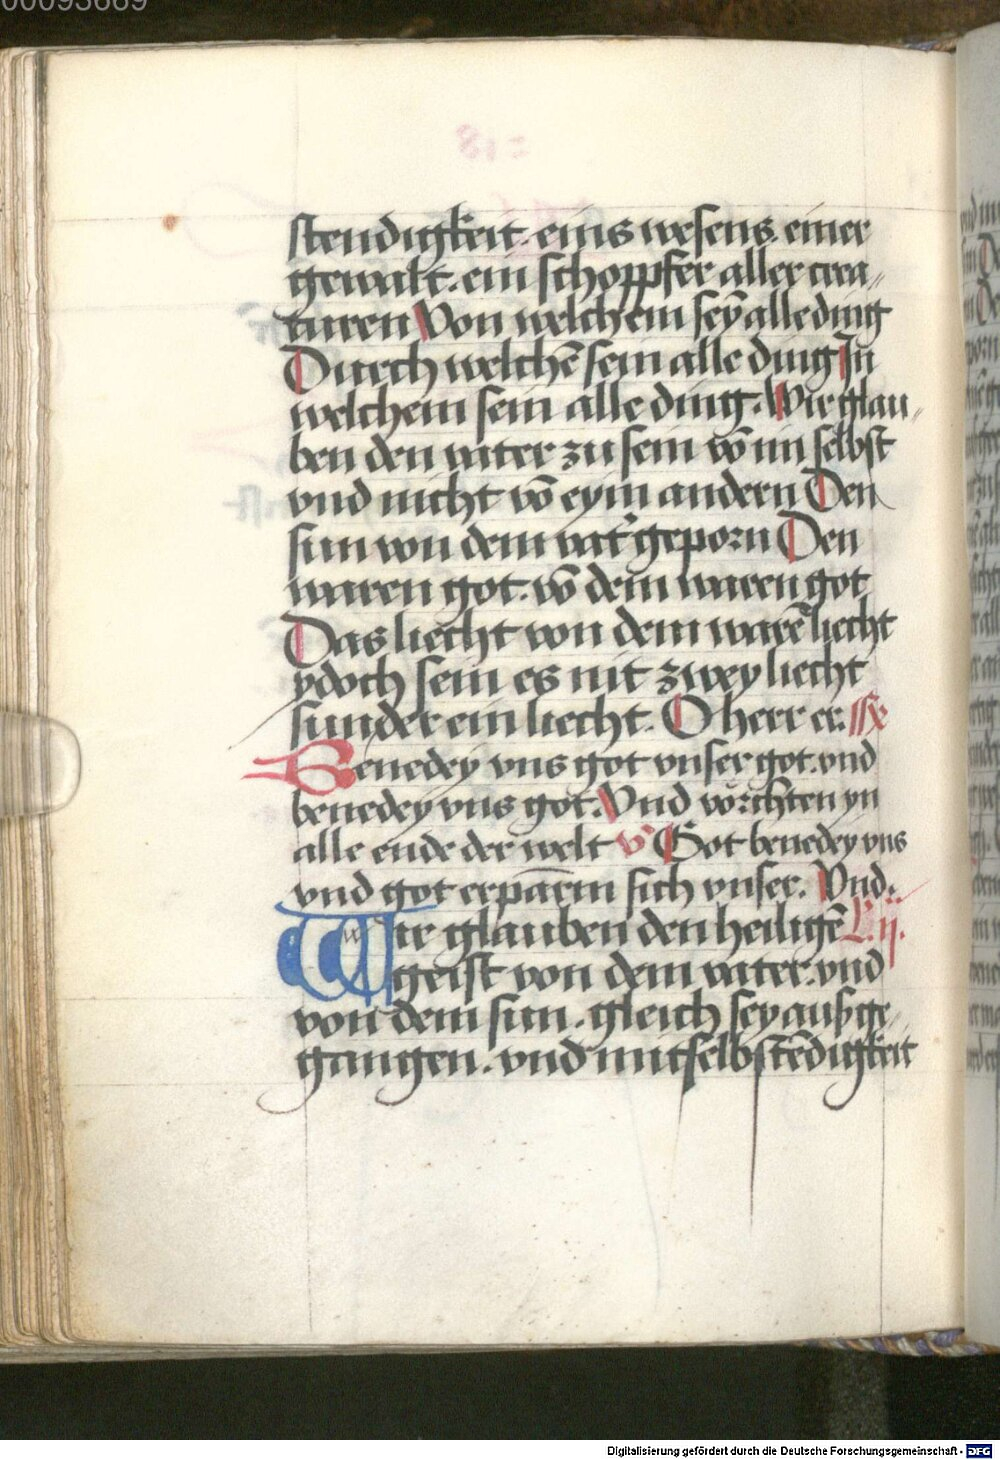 00093669
stendigkeit. eins wesens. einer
gewalt. ein schoppfer aller crea„
turen Von welchem sey̆ alle ding
Durch welchē sein alle ding Jn
welchem sein alle ding. Wir glau„
ben den vater zu sein vō im selbst
vnd nicht vō eym andern Den
sun von dem vat' geporn Den
waren got. vō dem waren got
Das liecht von dem warē liecht
ydoch sein es nit zwey liecht
sunder ein liecht. O herr er.
Benedey vns got vnser got. vnd
benedey vns got. Vnd vorchten yn
alle ende der welt v' Got benedey vns
vnd got erparm sich vnser. Vnd.
Wir glauben den heiligē L. ij.
geist von dem vater. vnd
von dem sun. gleich sey ausge„
gangen. vnd mitselbstēdigkeit
Digitalisierung gefördert durch die Deutsche Forschungsgemeinschaft - DFG